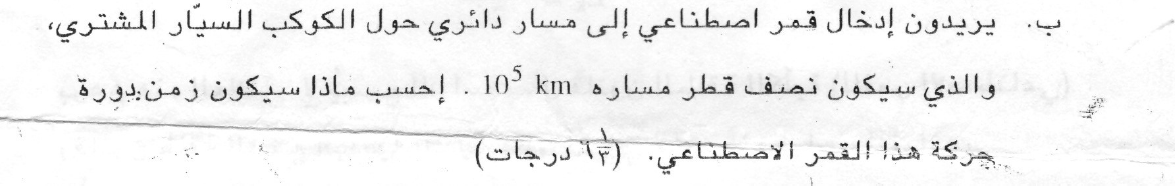 ب. يريدون إدخال قمر اصطناعي إلى مسار دائري حول الكوكب السيّار المشتري،
والذي سيكون نصف قطر مساره 10⁵ km . إحسب ماذا سيكون زمن دورة
حركة هذا القمر الاصطناعي. (٦⅓ درجات)